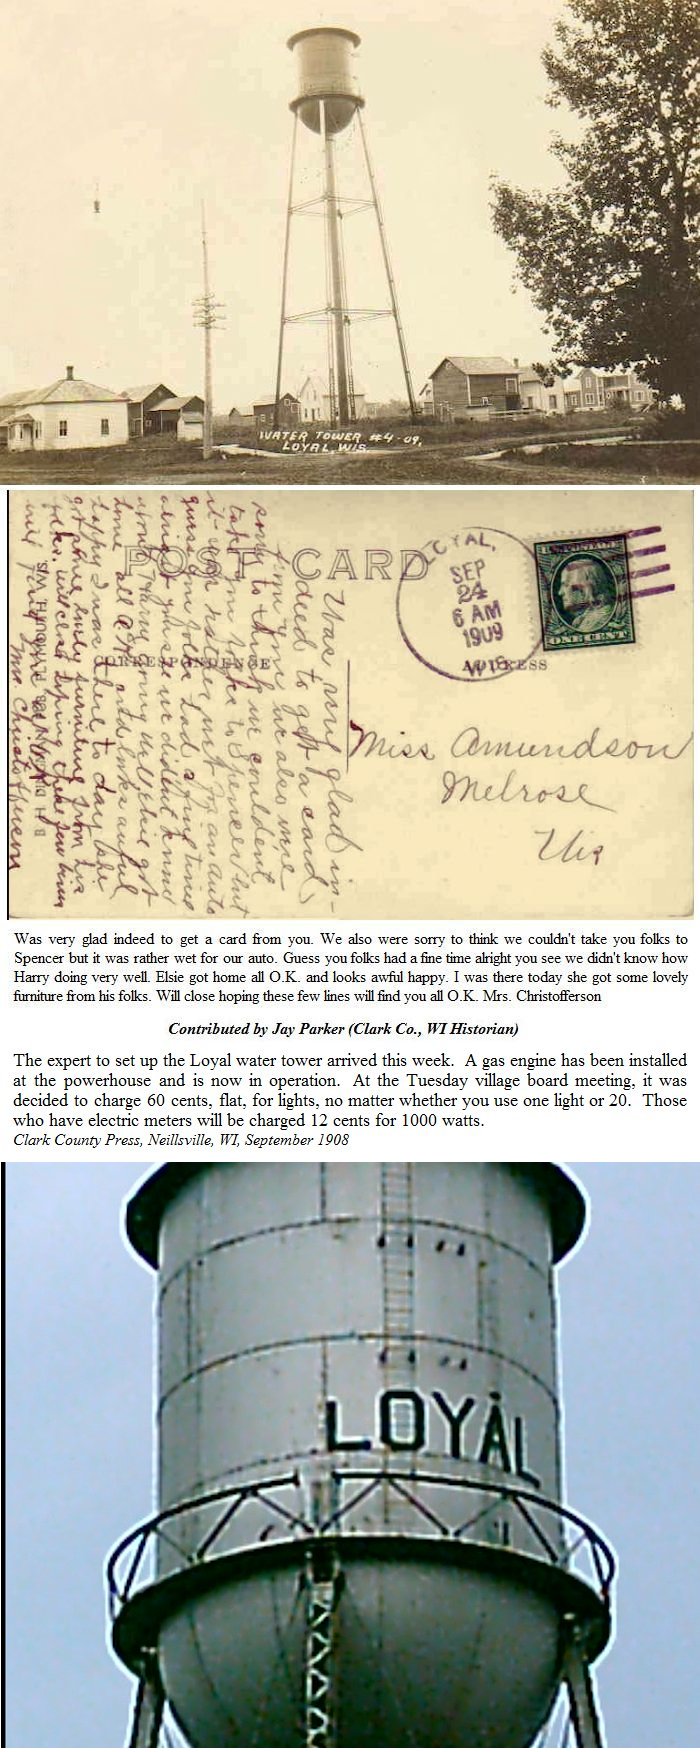 WATER TOWER #4-09,
LOYAL, WIS.
POST CARD
CORRESPONDENCE
ADDRESS
LOYAL,
SEP
24
6 AM
1909
WIS
ONE CENT
Was very glad in-
deed to get a card
from you we also were
sorry to think we couldent
take you folks to Spencer but
it was rather wet for an auto
guess you folks had a fine time
alright you see we dident know
Harry doing well Elsie got
home all O.K. and looks awful
happy I was there to day she
got some lovely furniture from his
folks. will close hoping these few lines
will find you all O.K.
Mrs. Christofferson
Miss Amundson
Melrose
Wis
Was very glad indeed to get a card from you. We also were sorry to think we couldn't take you folks to
Spencer but it was rather wet for our auto. Guess you folks had a fine time alright you see we didn't know how
Harry doing very well. Elsie got home all O.K. and looks awful happy. I was there today she got some lovely
furniture from his folks. Will close hoping these few lines will find you all O.K. Mrs. Christofferson
Contributed by Jay Parker (Clark Co., WI Historian)
The expert to set up the Loyal water tower arrived this week. A gas engine has been installed
at the powerhouse and is now in operation. At the Tuesday village board meeting, it was
decided to charge 60 cents, flat, for lights, no matter whether you use one light or 20. Those
who have electric meters will be charged 12 cents for 1000 watts.
Clark County Press, Neillsville, WI, September 1908
LOYAL